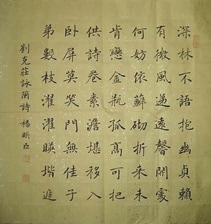 深林不語抱幽貞賴
有微風遞遠馨開處
何妨依蘚砌折來未
肯戀金瓶孤高可挹
供詩卷素澹堪移入
臥屏莫笑門無佳子
弟數枝濯濯暎堦庭
劉克莊詠蘭詩 楊